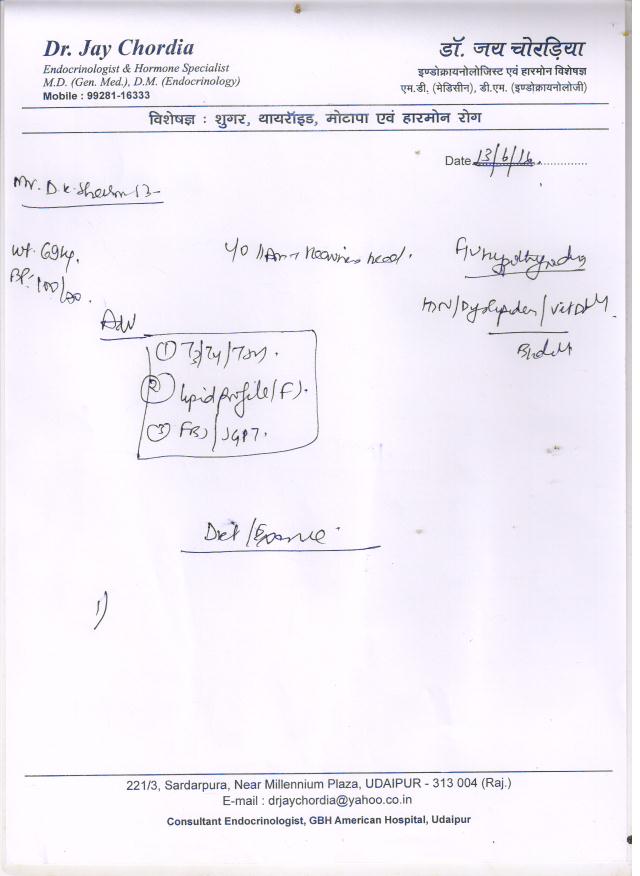 Dr. Jay Chordia
Endocrinologist & Hormone Specialist
M.D. (Gen. Med.), D.M. (Endocrinology)
Mobile : 99281-16333
डॉ. जय चोरड़िया
इण्डोक्रायनोलोजिस्ट एवं हारमोन विशेषज्ञ
एम.डी. (मेडिसीन), डी.एम. (इण्डोक्रायनोलोजी)
विशेषज्ञ : शुगर, थायरॉइड, मोटापा एवं हारमोन रोग
Date 13/6/16
Mr. D.K. Sharma
Wt. 69kg.
BP: 100/80.
Adv
① T3/T4/TSH.
② Lipid profile (F).
③ FBS/SGPT.
Diet/Exercise
1)
221/3, Sardarpura, Near Millennium Plaza, UDAIPUR - 313 004 (Raj.)
E-mail : drjaychordia@yahoo.co.in
Consultant Endocrinologist, GBH American Hospital, Udaipur